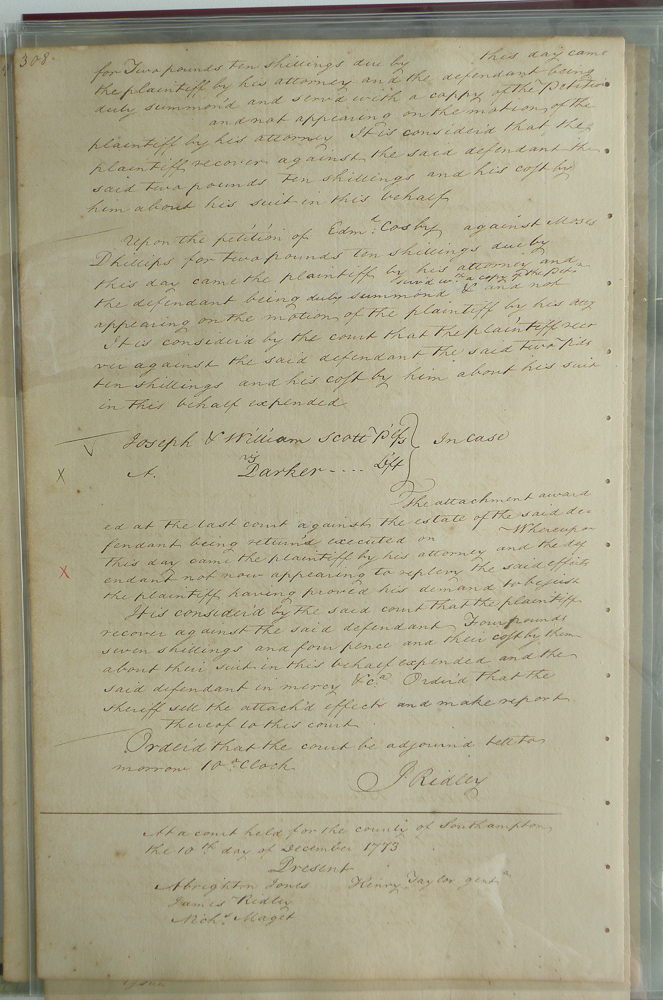 308.
for Two pounds ten shillings due by this day came
the plaintiff by his attorney and the defendant being
duly summond and servd with a coppy of the Petition
and not appearing on the motion of the
plaintiff by his attorney It is considerd that the
plaintiff recover against the said defendant the
said two pounds ten shillings and his cost by
him about his suit in this behalf
Upon the petition of Edmd. Cosby against Moses
Phillips for two pounds ten shillings due by
this day came the plaintiff by his attorney and
servd wth a copy of the Peti
the defendant being duly summond & and not
appearing on the motion of the plaintiff by his atty
It is considerd by the court that the plaintiff reco
ver against the said defendant the said two pds
ten shillings and his cost by him about his suit
in this behalf expended
Joseph & William Scott Plfs In case
vs
A. Parker .... Dft
The attachment award
ed at the last court against the estate of the said de
fendant being returnd executed on Whereupon
this day came the plaintiff by his attorney and the def
endant not now appearing to replevy the said effects
the plaintiff having proved his demand to be just
It is considerd by the said court that the plaintiff
recover against the said defendant Four pounds
seven shillings and four pence and their cost by them
about their suit in this behalf expended and the
said defendant in mercy &ca Orderd that the
sheriff sell the attachd effects and make report
thereof to this court
Orderd that the court be adjournd till to
morrow 10 oClock
J Ridley
At a court held for the county of Southampton
the 10th day of December 1773
Present
Albrighton Jones Henry Taylor gent
James Ridley
Nichs. Maget